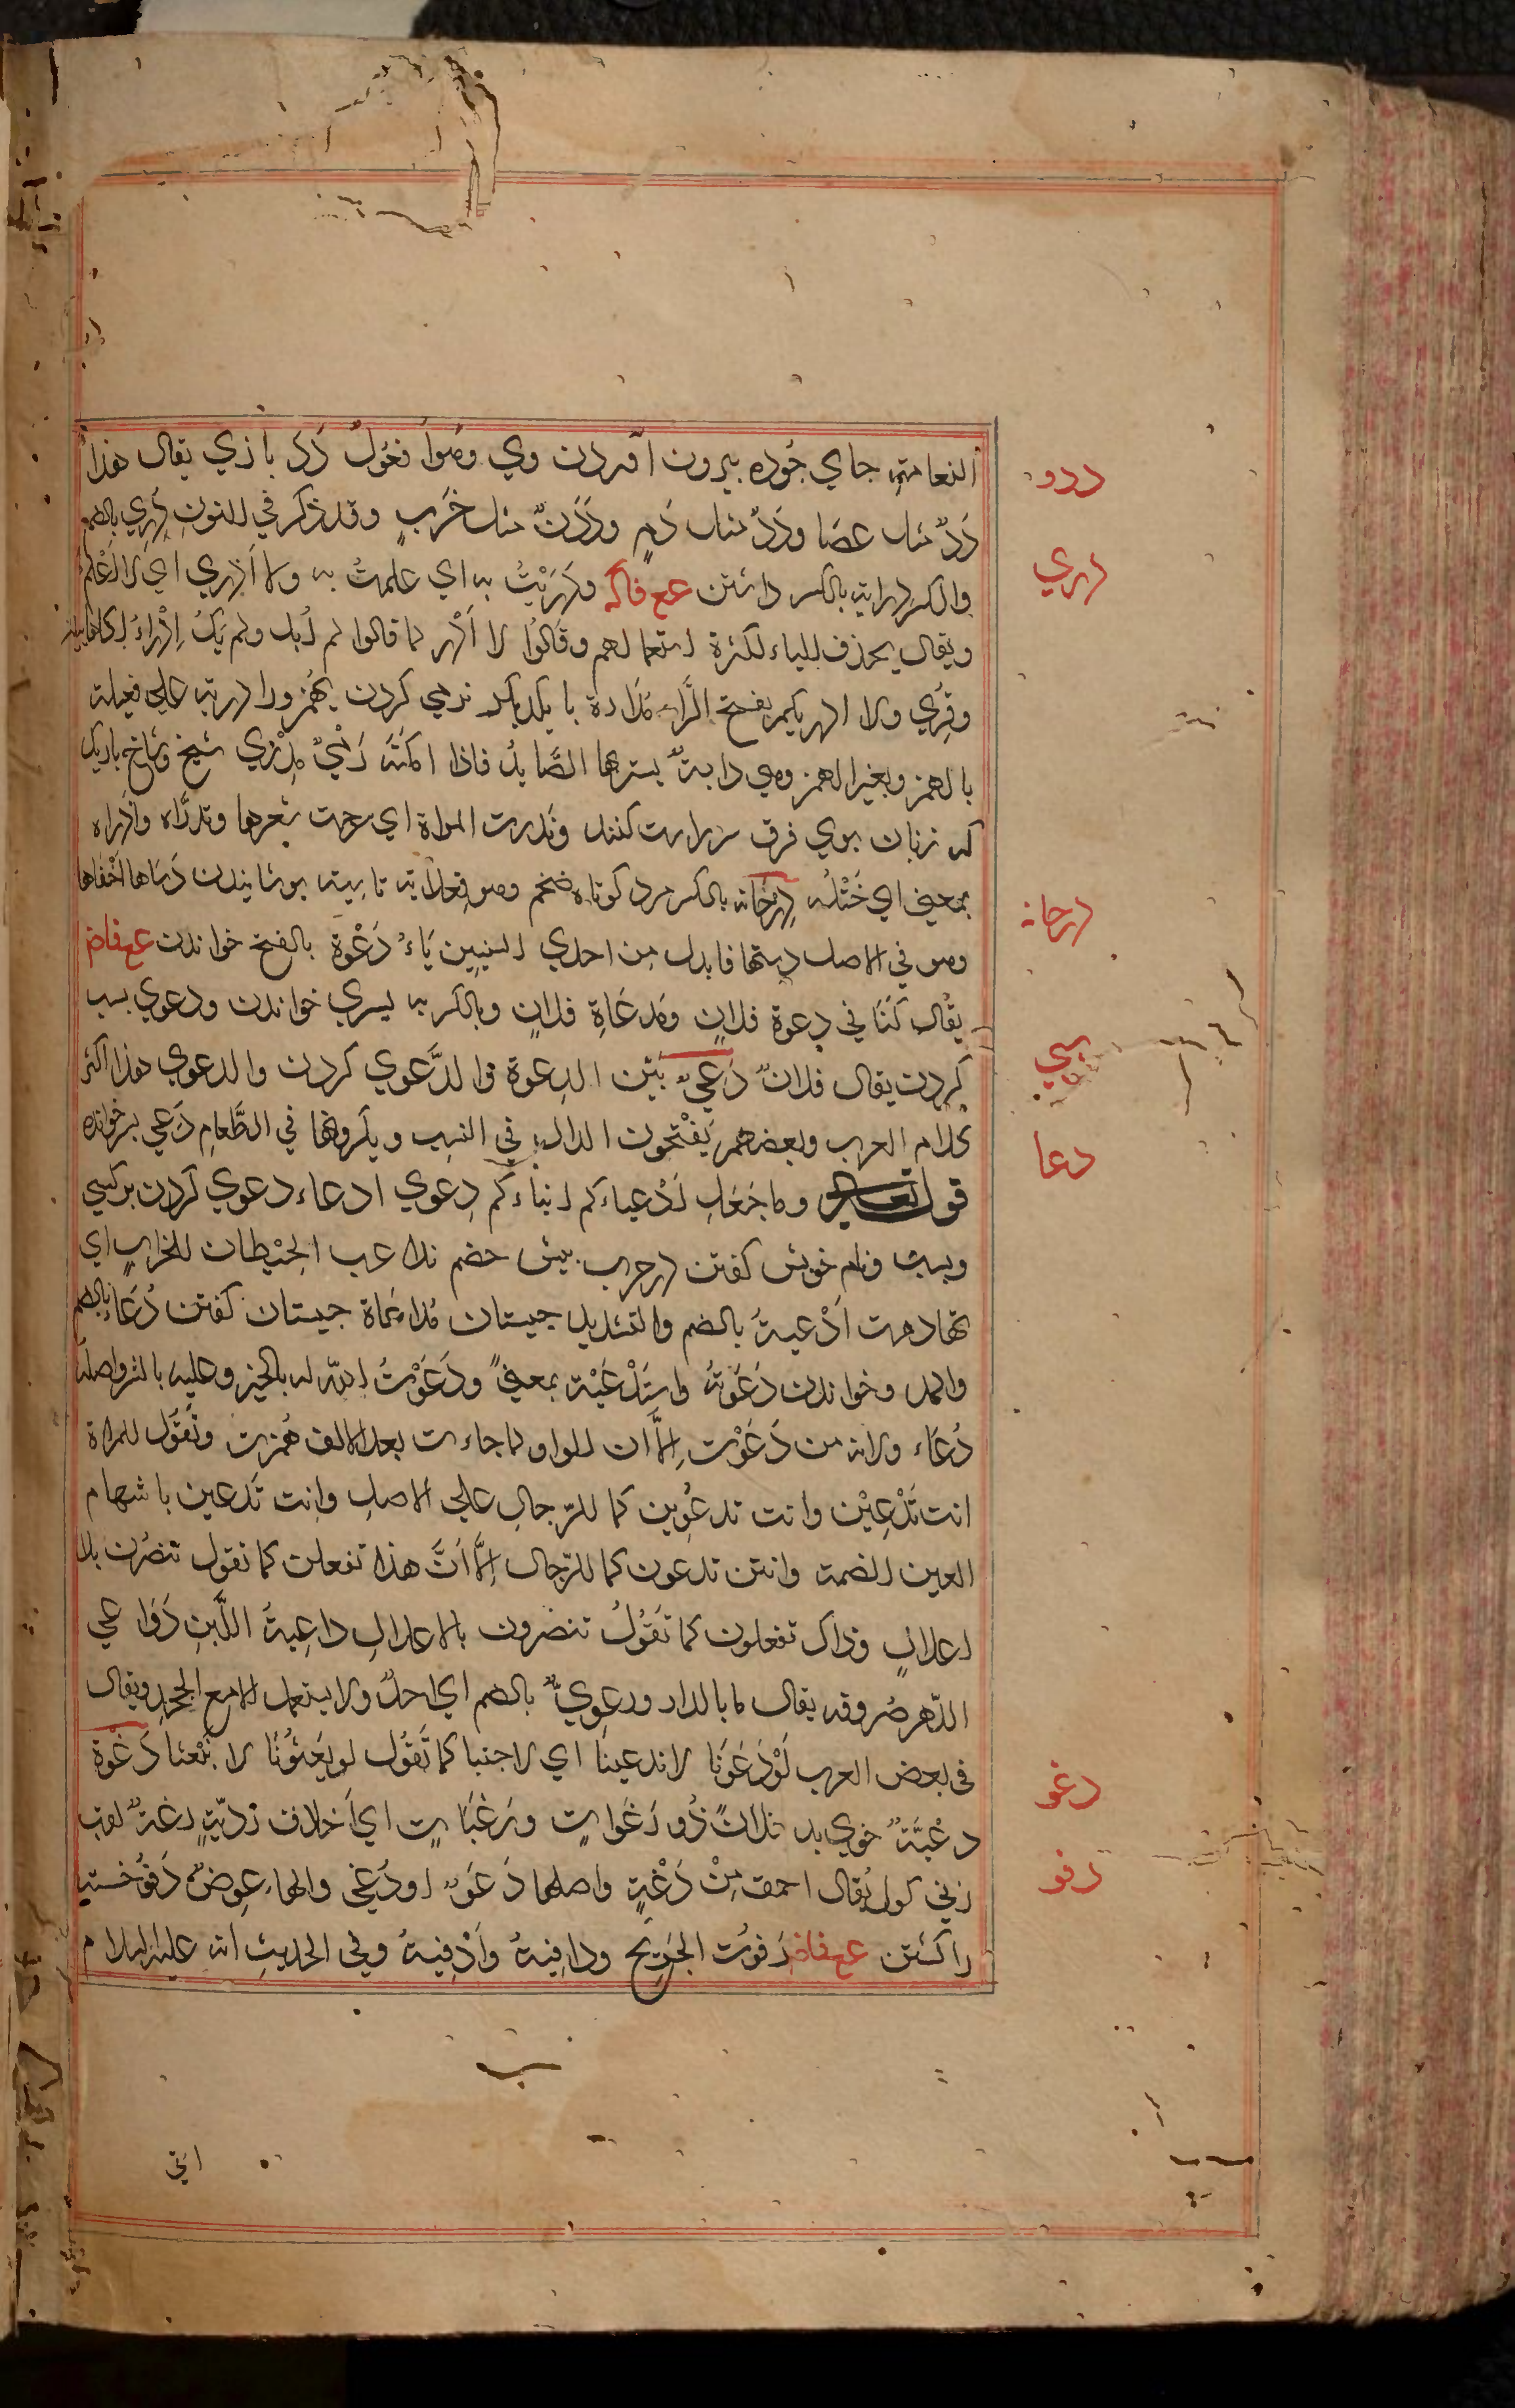 النعامتہ جاي جُوده بيرون اۤمردن وي وهُوا فعُولٌ دَدَ بازي يقال هذا
ددو
دَدٌ مثال عصَا ودَدٌ مثال دَمٍ ودَدَنٌ مثال خَرَبٍ وقد ذكر في النون دُرِي بالضم
والكسر درايتہ بالكسر دانستن عع فاكہ ودَرَيْتُ به اي علمتُ به ولا اَدْري اي لا اَعْلَمُ
دري
ويقال يحذف الياء لكثرة استعمالهم وقالُوا لا اَدْرِ كما قالوا لم اُبل ولم يَكُ اِدْرَاءُ
وقُرِي ولا ادريكم بفتح الرَّاء مُدَاراة با يكديكر نرمي كردن يُهمز ولا دريتہ علي فعيلة
بالهمز وبغير الهمز وهي دابةٌ يسترها الصَّايدُ فاذا امكَنَهُ رَمْيٌ مِدْرَي شيخ وشاخ باريك
كہ زنان بوي فرق سر راست كنند وتدرت المراة اي سرحت شعرها وتدرَّاه وادَّراه
بمعني اي خَتَلَه دِرْحَايہ بالكسر مرد كوتاه ضخم وهو فِعلَايہ تاسيہ پوشانيدن دَسَاها اَخْفاها
درحايہ
وهو في الاصل دسّها فابدل من احدي السينين يَاءٌ دَعْوَة بالفتح خواندن عع فاضہ
يقال كُنّا في دعوة فلانٍ ومَدعَاةِ فلانٍ وبالكسر به پسري خواندن ودعوي نسب
دسي
كردن يقال فلانٌ دَعِيٌّ بَيّن الدِعوة والدَّعوي كردن والدعوي هذا اكثر
كلام العرب وبعضهم يَفْتَحون الدال في النسب ويكسرونها في الطَّعام دَعِي پسر خوانده
دعا
قوله تعالي وما جَعَلَ اَدْعياءكم ابناءكم دعوي ادعاء دعوي كردن بركسي
ونسب ونام خويش كفتن درحرب پيش خصم تداعب الحِيْطان للخراب اي
تهادمت اَدْعيةُ بالضم والتشديد چيستان مُدَاعَاة چيستان كفتن دُعَاء بالضم
والمد وخواندن دَعَوتُه واستَدْعَيْتہ بمعنيً ودَعَوْتُ اللّه له بالخير وعليه بالشر واصله
دُعاء ولانہ من دَعَوْت اِلَّا ان الواو لما جاءت بعد الالف هُمِزت وتَقُول للمراة
انت تَدْعِيْن وانت تدعُوين كما للرّجالِ علي الاصل وانت تَدعين باشمام
العين الضمة وانتن تدعون كما للرّجال اِلَّا اَنَّ هذا تفعلن كما نقول تنصُرن بلا
اعلالٍ وذاك تفعلون كما تَقُولُ تنصرون بالاعلال داعِيةُ اللَّبن دَوَاعي
الدّهر صُروفه يقال ما بالدار دعوِيٌّ بالضم اي احدٌ ولا يستعمل الا مع الجحد ويقال
في بعض العرب لَوْدَعَوْنا لاندعينَا اي لاجبنا كما تَقُول لو بَعَثُونَا لانبَعَثنا دَغْوَة
دغو
دغْيَةٌ خوي بد فلانٌ ذُو دَغَواتٍ ودَغَيَاتٍ اي اَخلاف رديّةٍ دغةٌ لقب
زني كول يُقال احمق مِنْ دُغَةٍ واصلها دُغَوٌ او دُغَي والهاء عِوضٌ دَفْوٌ خستہ
دفو
را كشتن عع فاضہ دَفوتُ الجَرِيحَ ودافيتہُ واَدْفيتہُ وفي الحديث انہ عليه السلام
اتي